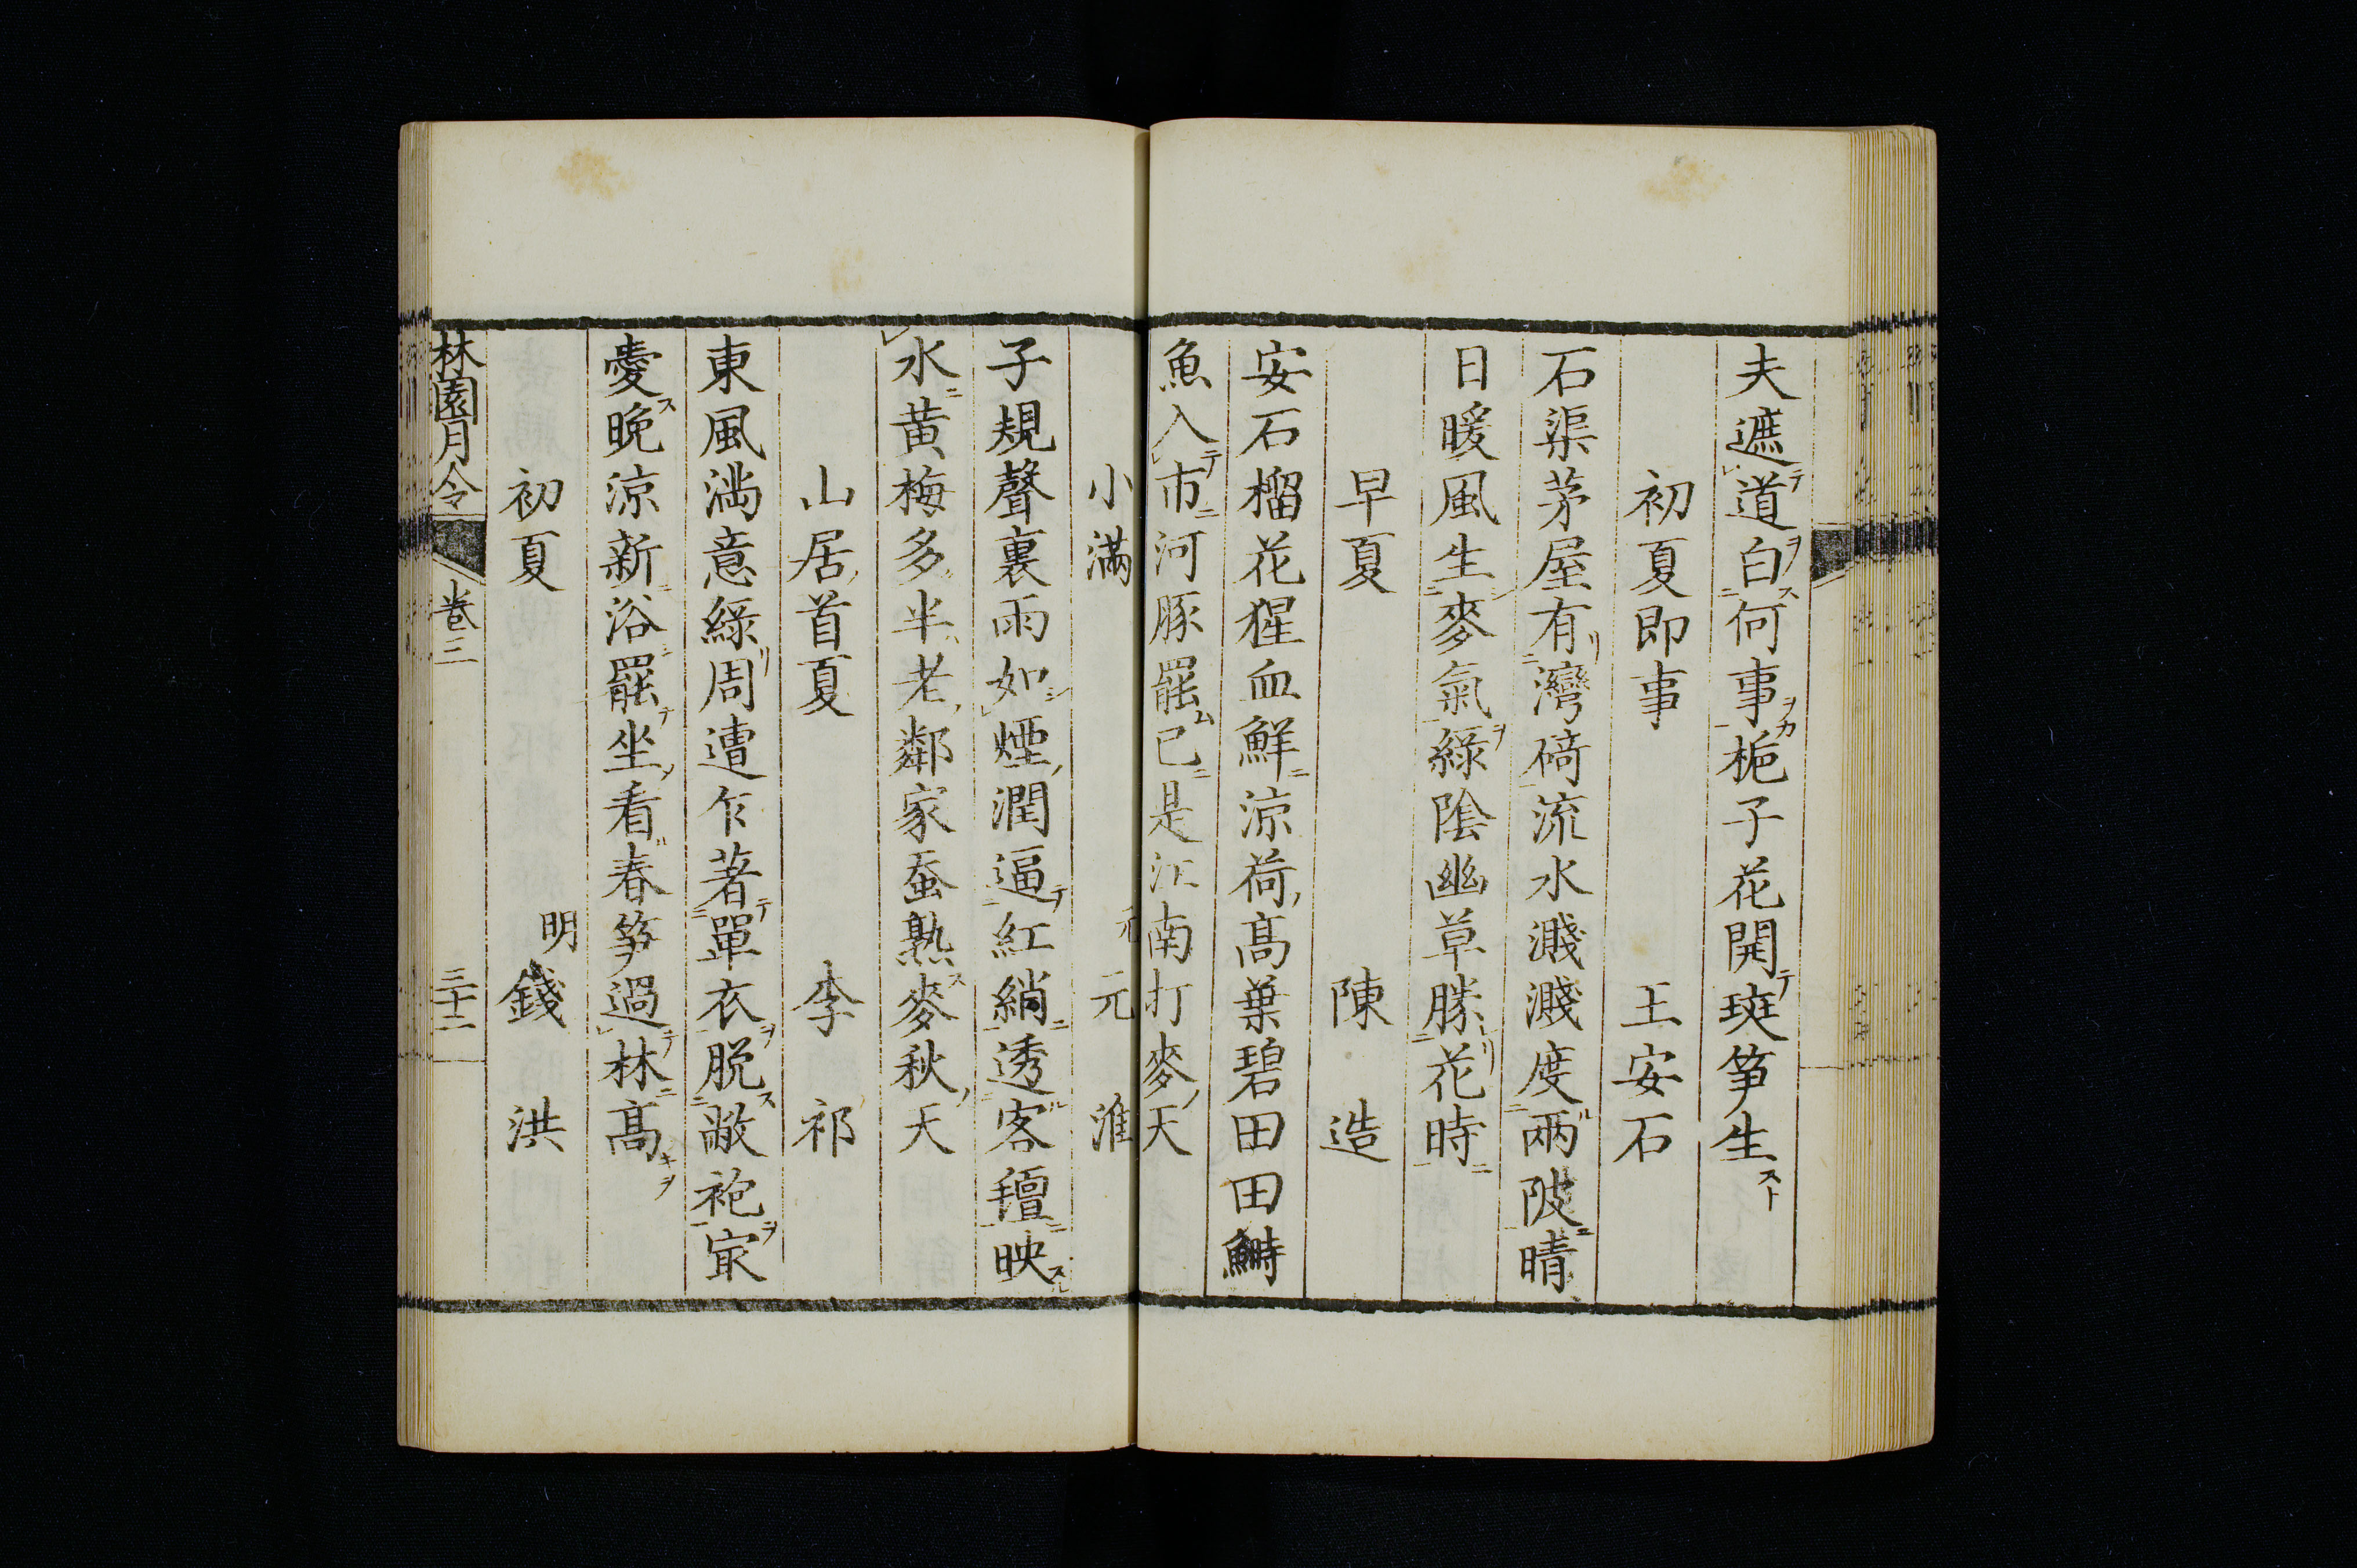 夫遮道白何事梔子花開斑笋生
初夏即事　王安石
石渠茅屋有灣碕流水濺濺度兩陂晴
日暖風生麥氣綠陰幽草勝花時
早夏　陳造
安石榴花猩血鮮涼荷高葉碧田田鰣
魚入市河豚罷已是江南打麥天
小滿　元 元淮
子規聲裏雨如煙潤逼紅綃透客氊映
水黄梅多半老鄰家蚕熟麥秋天
山居首夏　李祁
東風滿意綠周遭乍著單衣脱敝袍㝡
愛晩涼新浴罷坐看春笋過林高
初夏　明 錢洪
林園月令　卷三　三十二